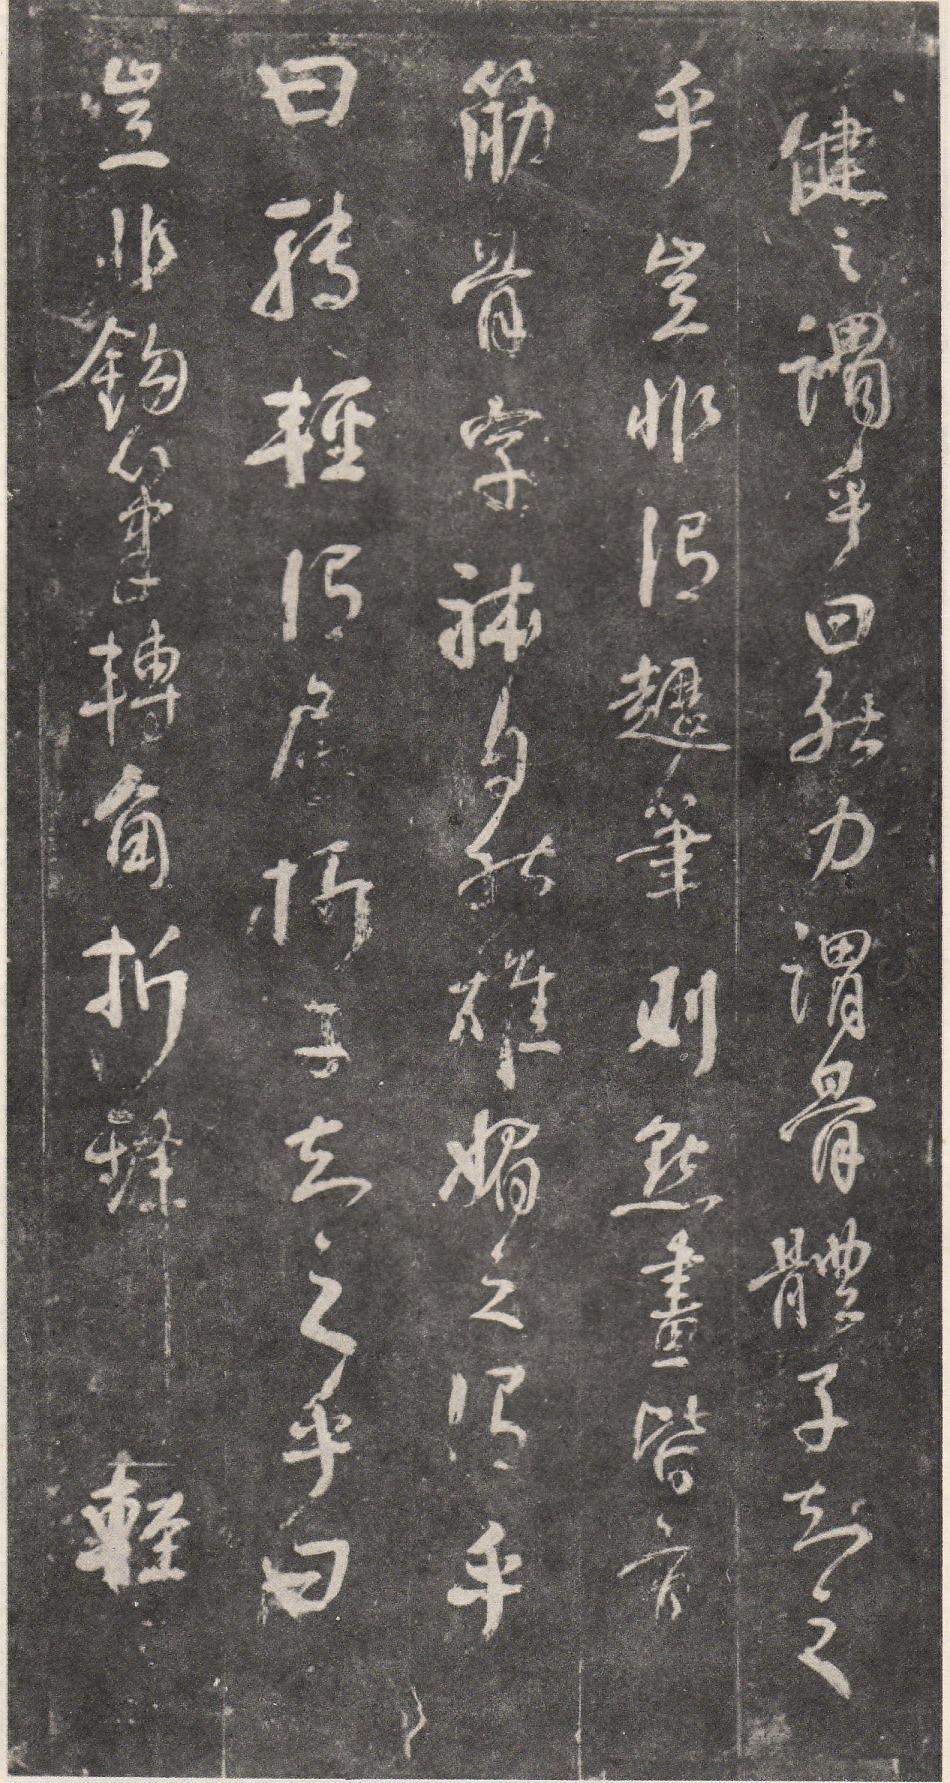 健之謂乎曰然力謂骨體子知之
乎豈非謂趯筆則點畫皆有
筋骨字體自然雄媚之謂乎
曰然輕謂屈折子知之乎曰
豈非鉤筆轉角折鋒輕